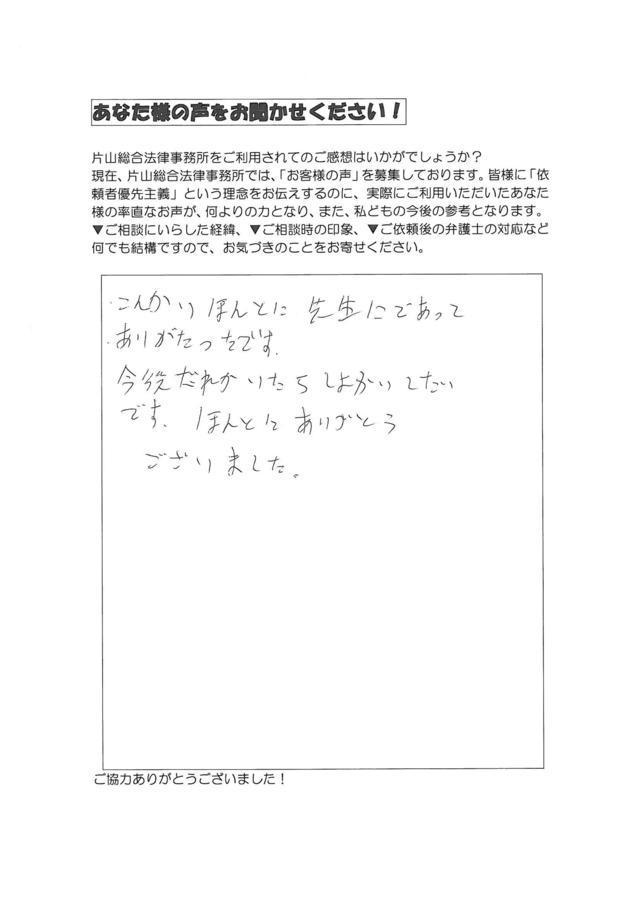 あなた様の声をお聞かせください！
片山総合法律事務所をご利用されてのご感想はいかがでしょうか？
現在、片山総合法律事務所では、「お客様の声」を募集しております。皆様に「依
頼者優先主義」という理念をお伝えするのに、実際にご利用いただいたあなた
様の率直なお声が、何よりの力となり、また、私どもの今後の参考となります。
▼ご相談にいらした経緯、▼ご相談時の印象、▼ご依頼後の弁護士の対応など
何でも結構ですので、お気づきのことをお寄せください。
こんかいほんとに 先生にであって
ありがたったです.
今後だれかいたらしよかいしたい
です. ほんとにありがとう
ございました。
ご協力ありがとうございました！